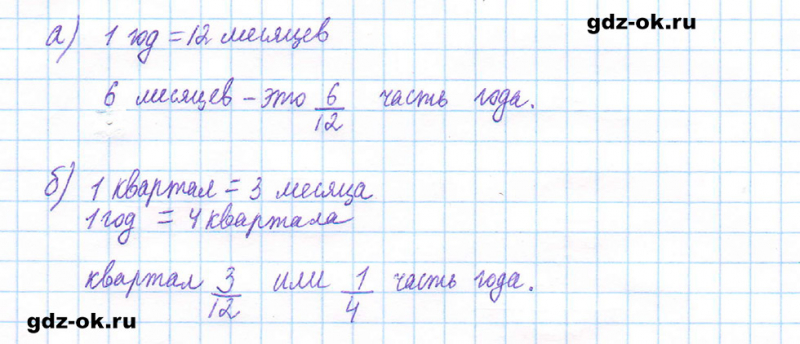 gdz-ok.ru
а) 1 год = 12 месяцев
6 месяцев - это 6/12 часть года.
б) 1 квартал = 3 месяца
1 год = 4 квартала
квартал 3/12 или 1/4 часть года.
gdz-ok.ru